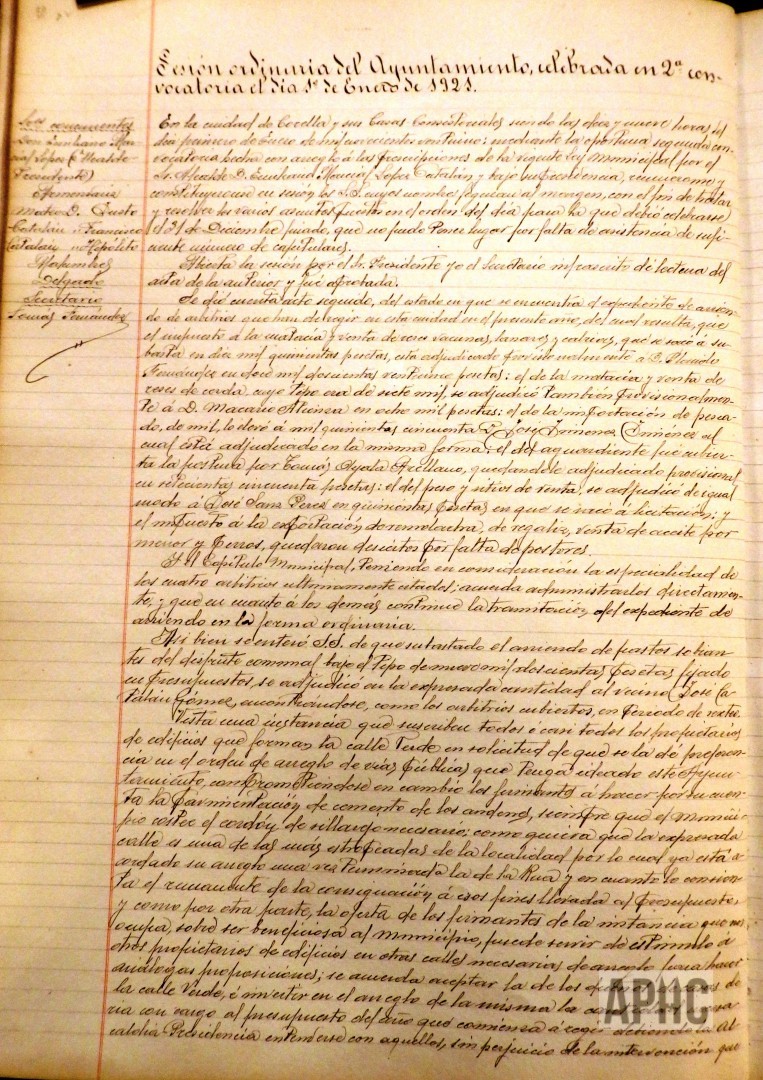 Sesión ordinaria del Ayuntamiento, celebrada en 2ª con-
vocatoria el día 1º de Enero de 1921.
Sres. concurrentes
Don Emiliano Mar-
cial Lopez (Alcalde
Presidente)
Armentaria
Mateo D. Justo
Catalán Francisco
Catalán Hipólito
Delgado
Secretario
Tomás Fernández
En la ciudad de Corella y sus Casas Consistoriales siendo las diez y nueve horas del
día primero de Enero de mil novecientos veintiuno: mediante la oportuna segunda con-
vocatoria hecha con arreglo á las prescripciones de la vigente ley Municipal por el
Sr. Alcalde D. Emiliano Marcial Lopez Catalán y bajo su presidencia, reunieronse y
constituyeronse en sesión los S.S. cuyos nombres figuran al margen, con el fin de tratar
y resolver los varios asuntos puestos en el orden del día para la que debió celebrarse
el 31 de Diciembre pasado, que no pudo tener lugar por falta de asistencia de sufi-
ciente número de capitulares.
Abierta la sesión por el Sr. Presidente yo el Secretario infrascrito dí lectura del
acta de la anterior y fué aprobada.
Se dió cuenta acto seguido, del estado en que se encuentra el expediente de arrien-
do de arbitrios que han de regir en esta ciudad en el presente año, del cual resulta, que
el impuesto á la matacía y venta de reses vacunas, lanares y cabrías, que se sacó á su-
basta en diez mil quinientas pesetas, está adjudicado provisionalmente á D. Manolo
Fernández en doce mil doscientas veintiuna pesetas: el de la matacía y venta de
reses de cerda, cuyo tipo era de siete mil, se adjudicó también provisionalmen-
te á D. Macario Atienza en ocho mil pesetas: el de la importación de pesca-
do, de mil, lo elevó á mil quinientas cincuenta D. José Jimenez Jimenez al
cual está adjudicado en la misma forma: el del aguardiente fué cubier-
ta la postura por Tomás Ayala Arellano, quedandole adjudicado provisional
en setecientas cincuenta pesetas: el del peso y sitios de venta, se adjudicó de igual
modo á José Sanz Perez en quinientas pesetas en que se sacó á licitación; y
el impuesto á la exportación de remolacha, de regaliz, venta de aceite por
menor y perros, quedaron desiertos por falta de postores.
Y el Capítulo Municipal, teniendo en consideración la especialidad de
los cuatro arbitrios ultimamente citados; acuerda administrarlos directamen-
te, y que en cuanto á los demás continue la tramitación del expediente de
arriendo en la forma ordinaria.
Así bien se enteró S.S. de que subastado el arriendo de pastos sobran-
tes del disfrute comunal bajo el tipo de nueve mil doscientas pesetas fijado
en presupuestos, se adjudicó en la expresada cantidad al vecino José Ca-
talán Gómez, encontrándose, como los arbitrios cubiertos, en periodo de sexteo.
Vista una instancia que suscriben todos ó casi todos los propietarios
de edificios que forman la calle Verde en solicitud de que se la dé preferen-
cia en el orden de arreglo de vías públicas que tenga ideado este Ayun-
tamiento, comprometiéndose en cambio los firmantes á hacer por su cuen-
ta la pavimentación de cemento de los andenes, siempre que el Munici-
pio costee el cordón de sillarejo necesario; como quiera que la expresada
calle es una de las más estropeadas de la localidad por lo cual ya está a-
cordado su arreglo una vez terminada la de la Rua y en cuanto lo consien-
ta el remanente de la consignación á esos fines llevada al presupuesto,
y como por otra parte, la oferta de los firmantes de la instancia que nos
ocupa, sobre ser beneficiosa al municipio, puede servir de estimulo á
otros propietarios de edificios en otras calles necesarias de arreglo para hacer
análogas proposiciones; se acuerda aceptar la de los de
la calle Verde, é invertir en el arreglo de la misma la
ria con cargo al presupuesto del año que comienza á regir debiendo la Al-
caldía-Presidencia entenderse con aquellos, sin perjuicio de la intervención que
APHC